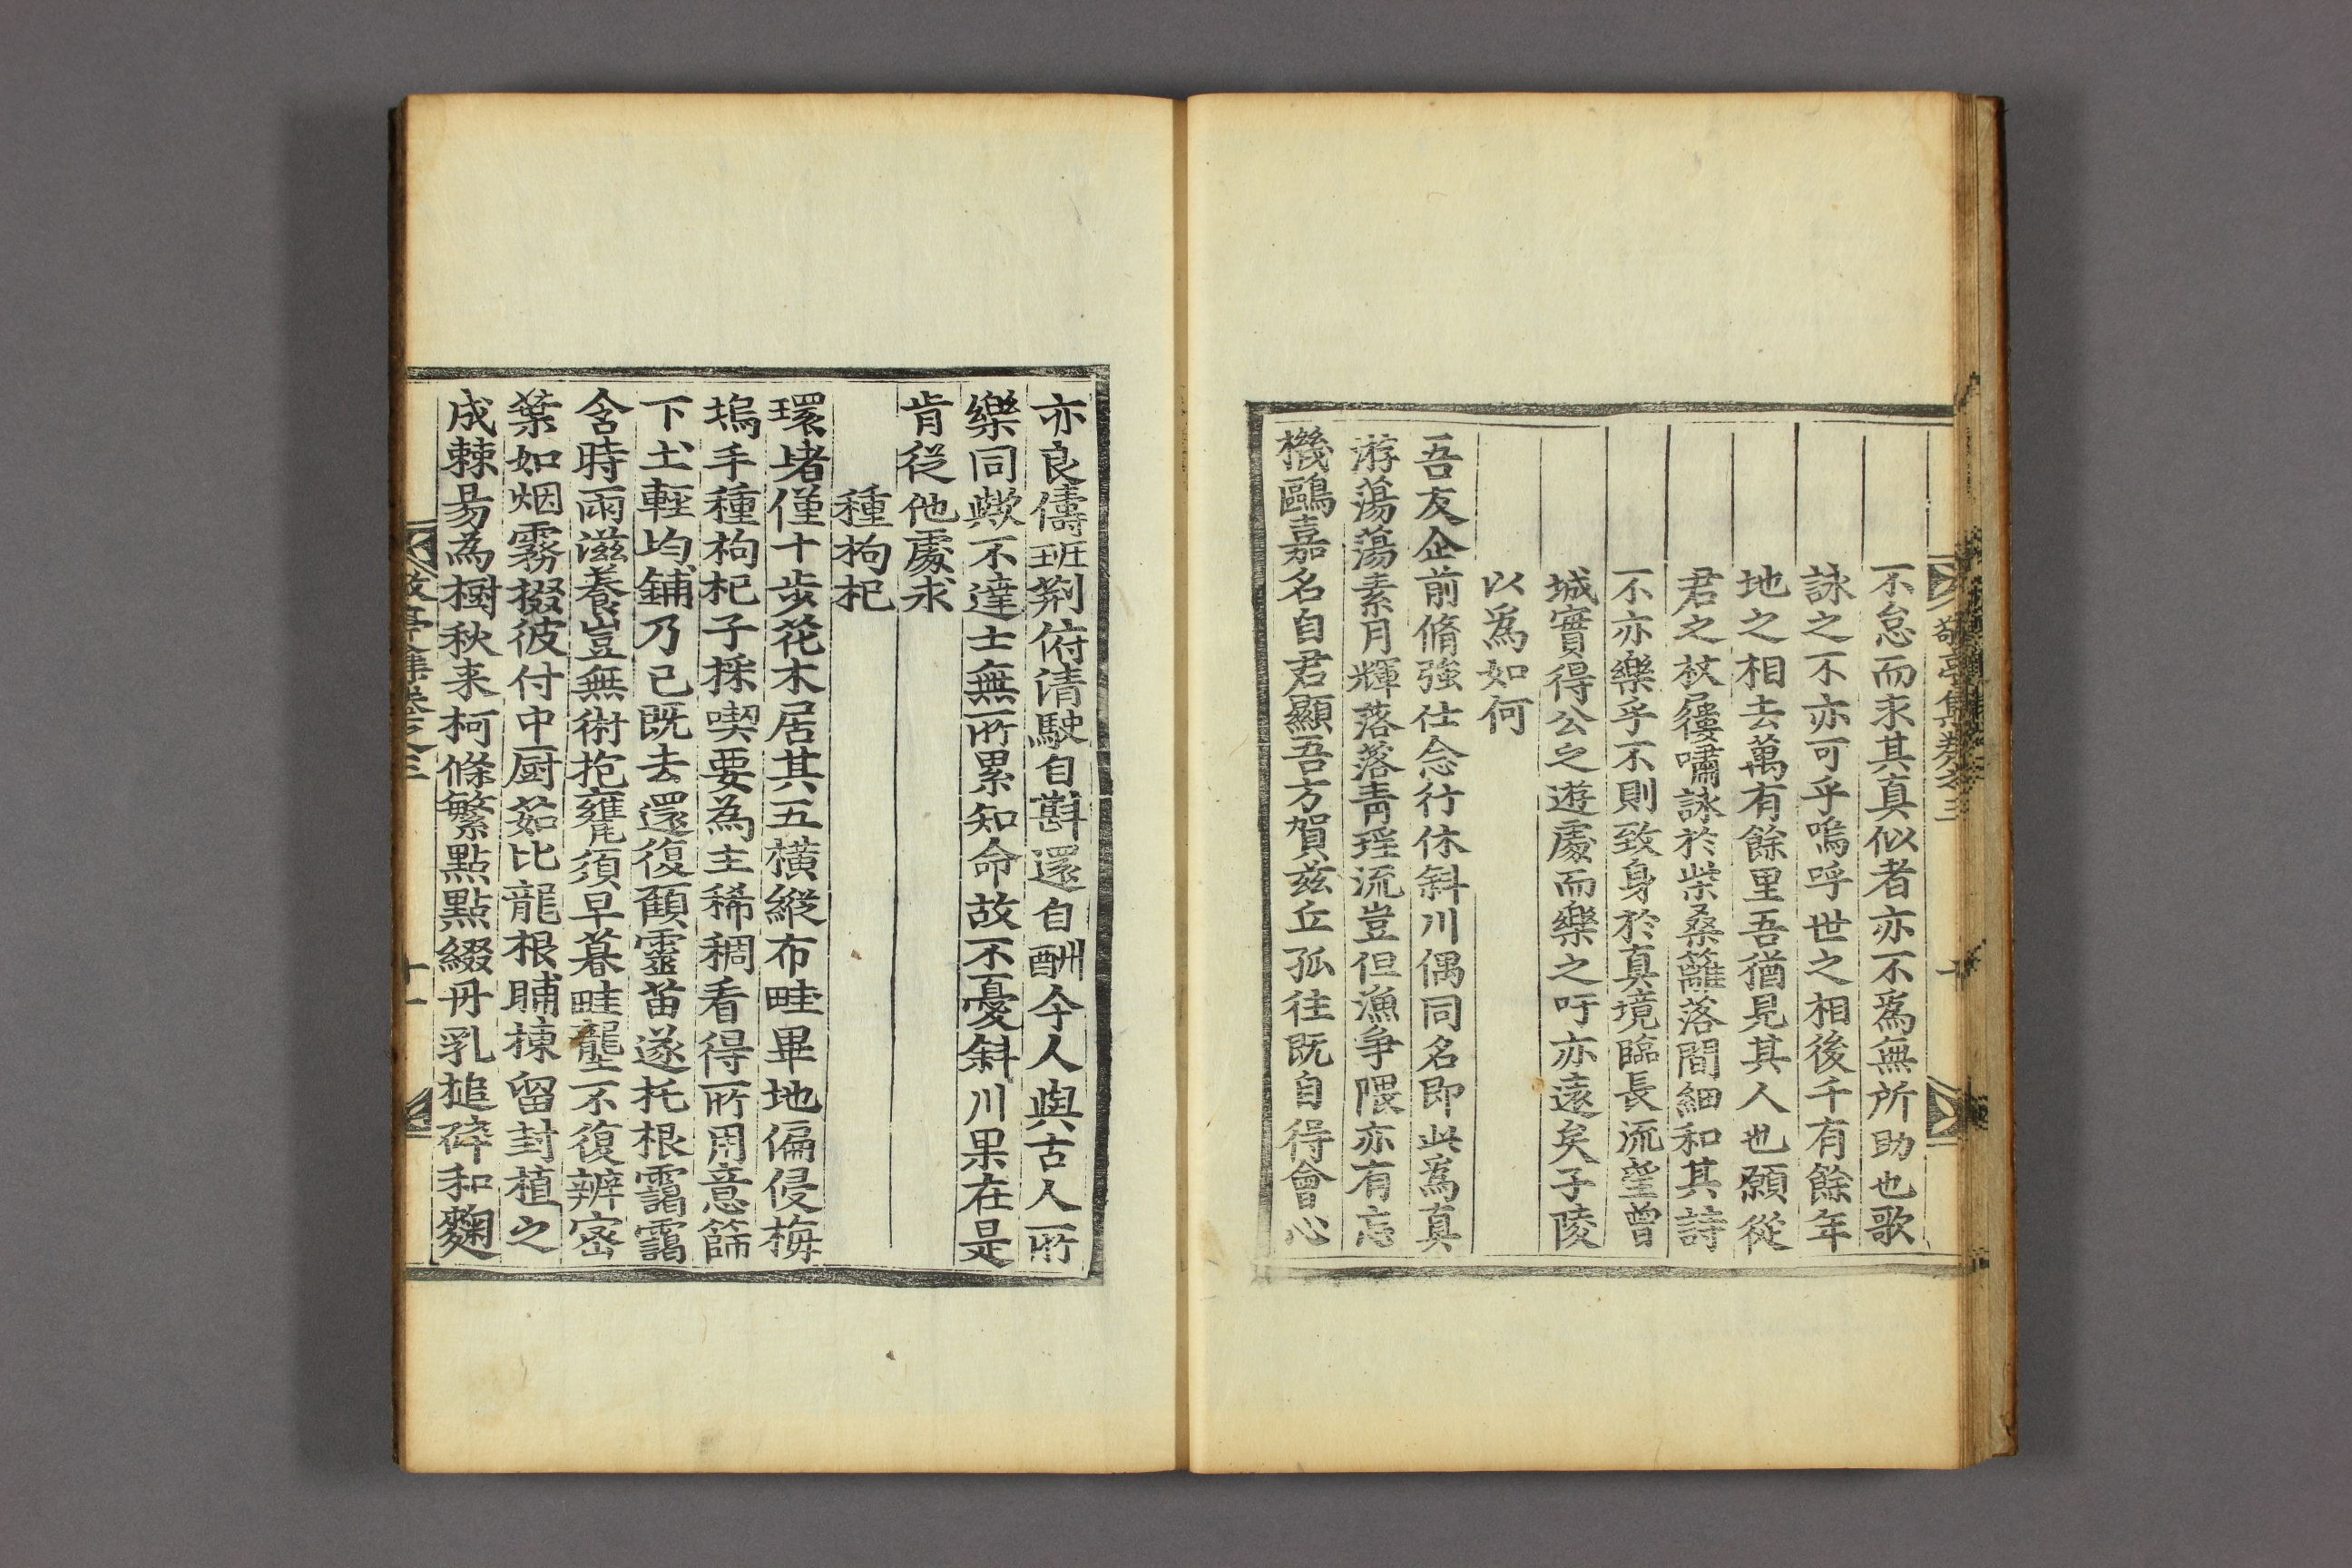 敬亭集卷之三
不怠而求其真似者亦不爲無所助也歌
詠之不亦可乎嗚呼世之相後千有餘年
地之相去萬有餘里吾猶見其人也願從
君之杖屨嘯詠於柴桑籬落間細和其詩
不亦樂乎不則致身於真境臨長流望曾
城實得公之遊處而樂之吁亦遠矣子陵
以爲如何
吾友企前脩強仕念行休斜川偶同名即此爲真
游蕩蕩素月輝落落靑瑤流豈但漁爭隈亦有忘
機鷗嘉名自君顯吾方賀玆丘孤往旣自得會心
亦良儔班荊俯淸駛自斟還自酬今人與古人所
樂同歟不達士無所累知命故不憂斜川果在是
肯從他處求
種枸杞
環堵僅十步花木居其五橫縱布畦畢地偏侵梅
塢手種枸杞子採喫要爲主稀稠看得所用意篩
下土輕均鋪乃已旣去還復顧靈苗遂托根靄靄
含時雨滋養豈無術抱甕須早暮畦壟不復辨密
葉如烟霧掇彼付中厨茹比龍根脯揀留封植之
成棘易爲樹秋來柯條繁點點綴丹乳搥碎和麴
敬亭集卷之三
十一